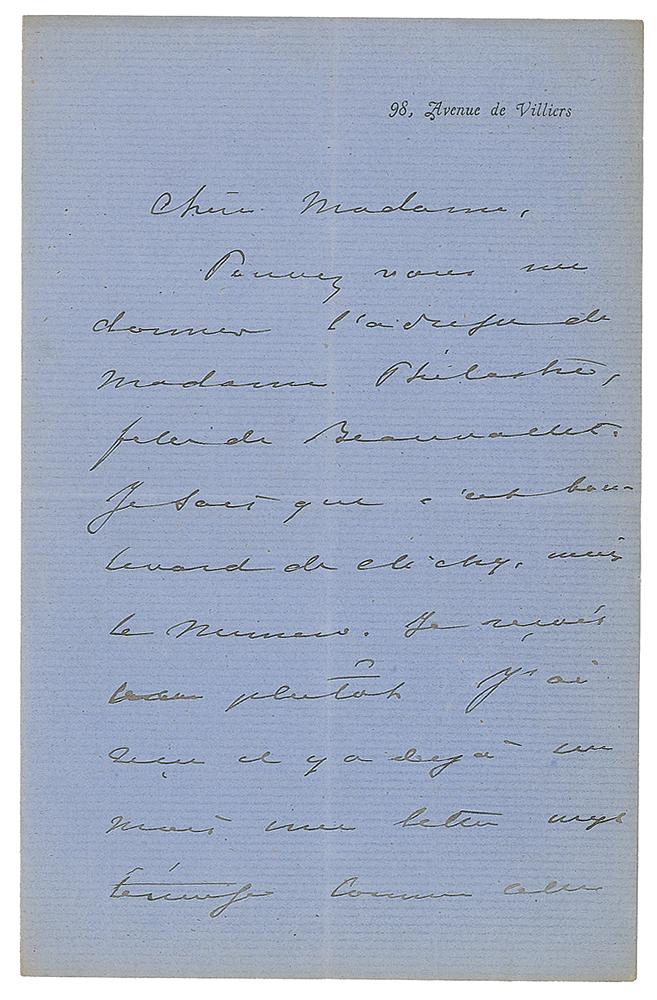 98, Avenue de Villiers
Chère Madame,
Pouvez vous me
donner l'adresse de
Madame Philastre,
fille de Beauvallet.
Je sais que c'est bou-
levard de Clichy, mais
le numero. Je reçois
plutôt J'ai
reçu il y a dejà un
mois une lettre mys
térieuse comme celle